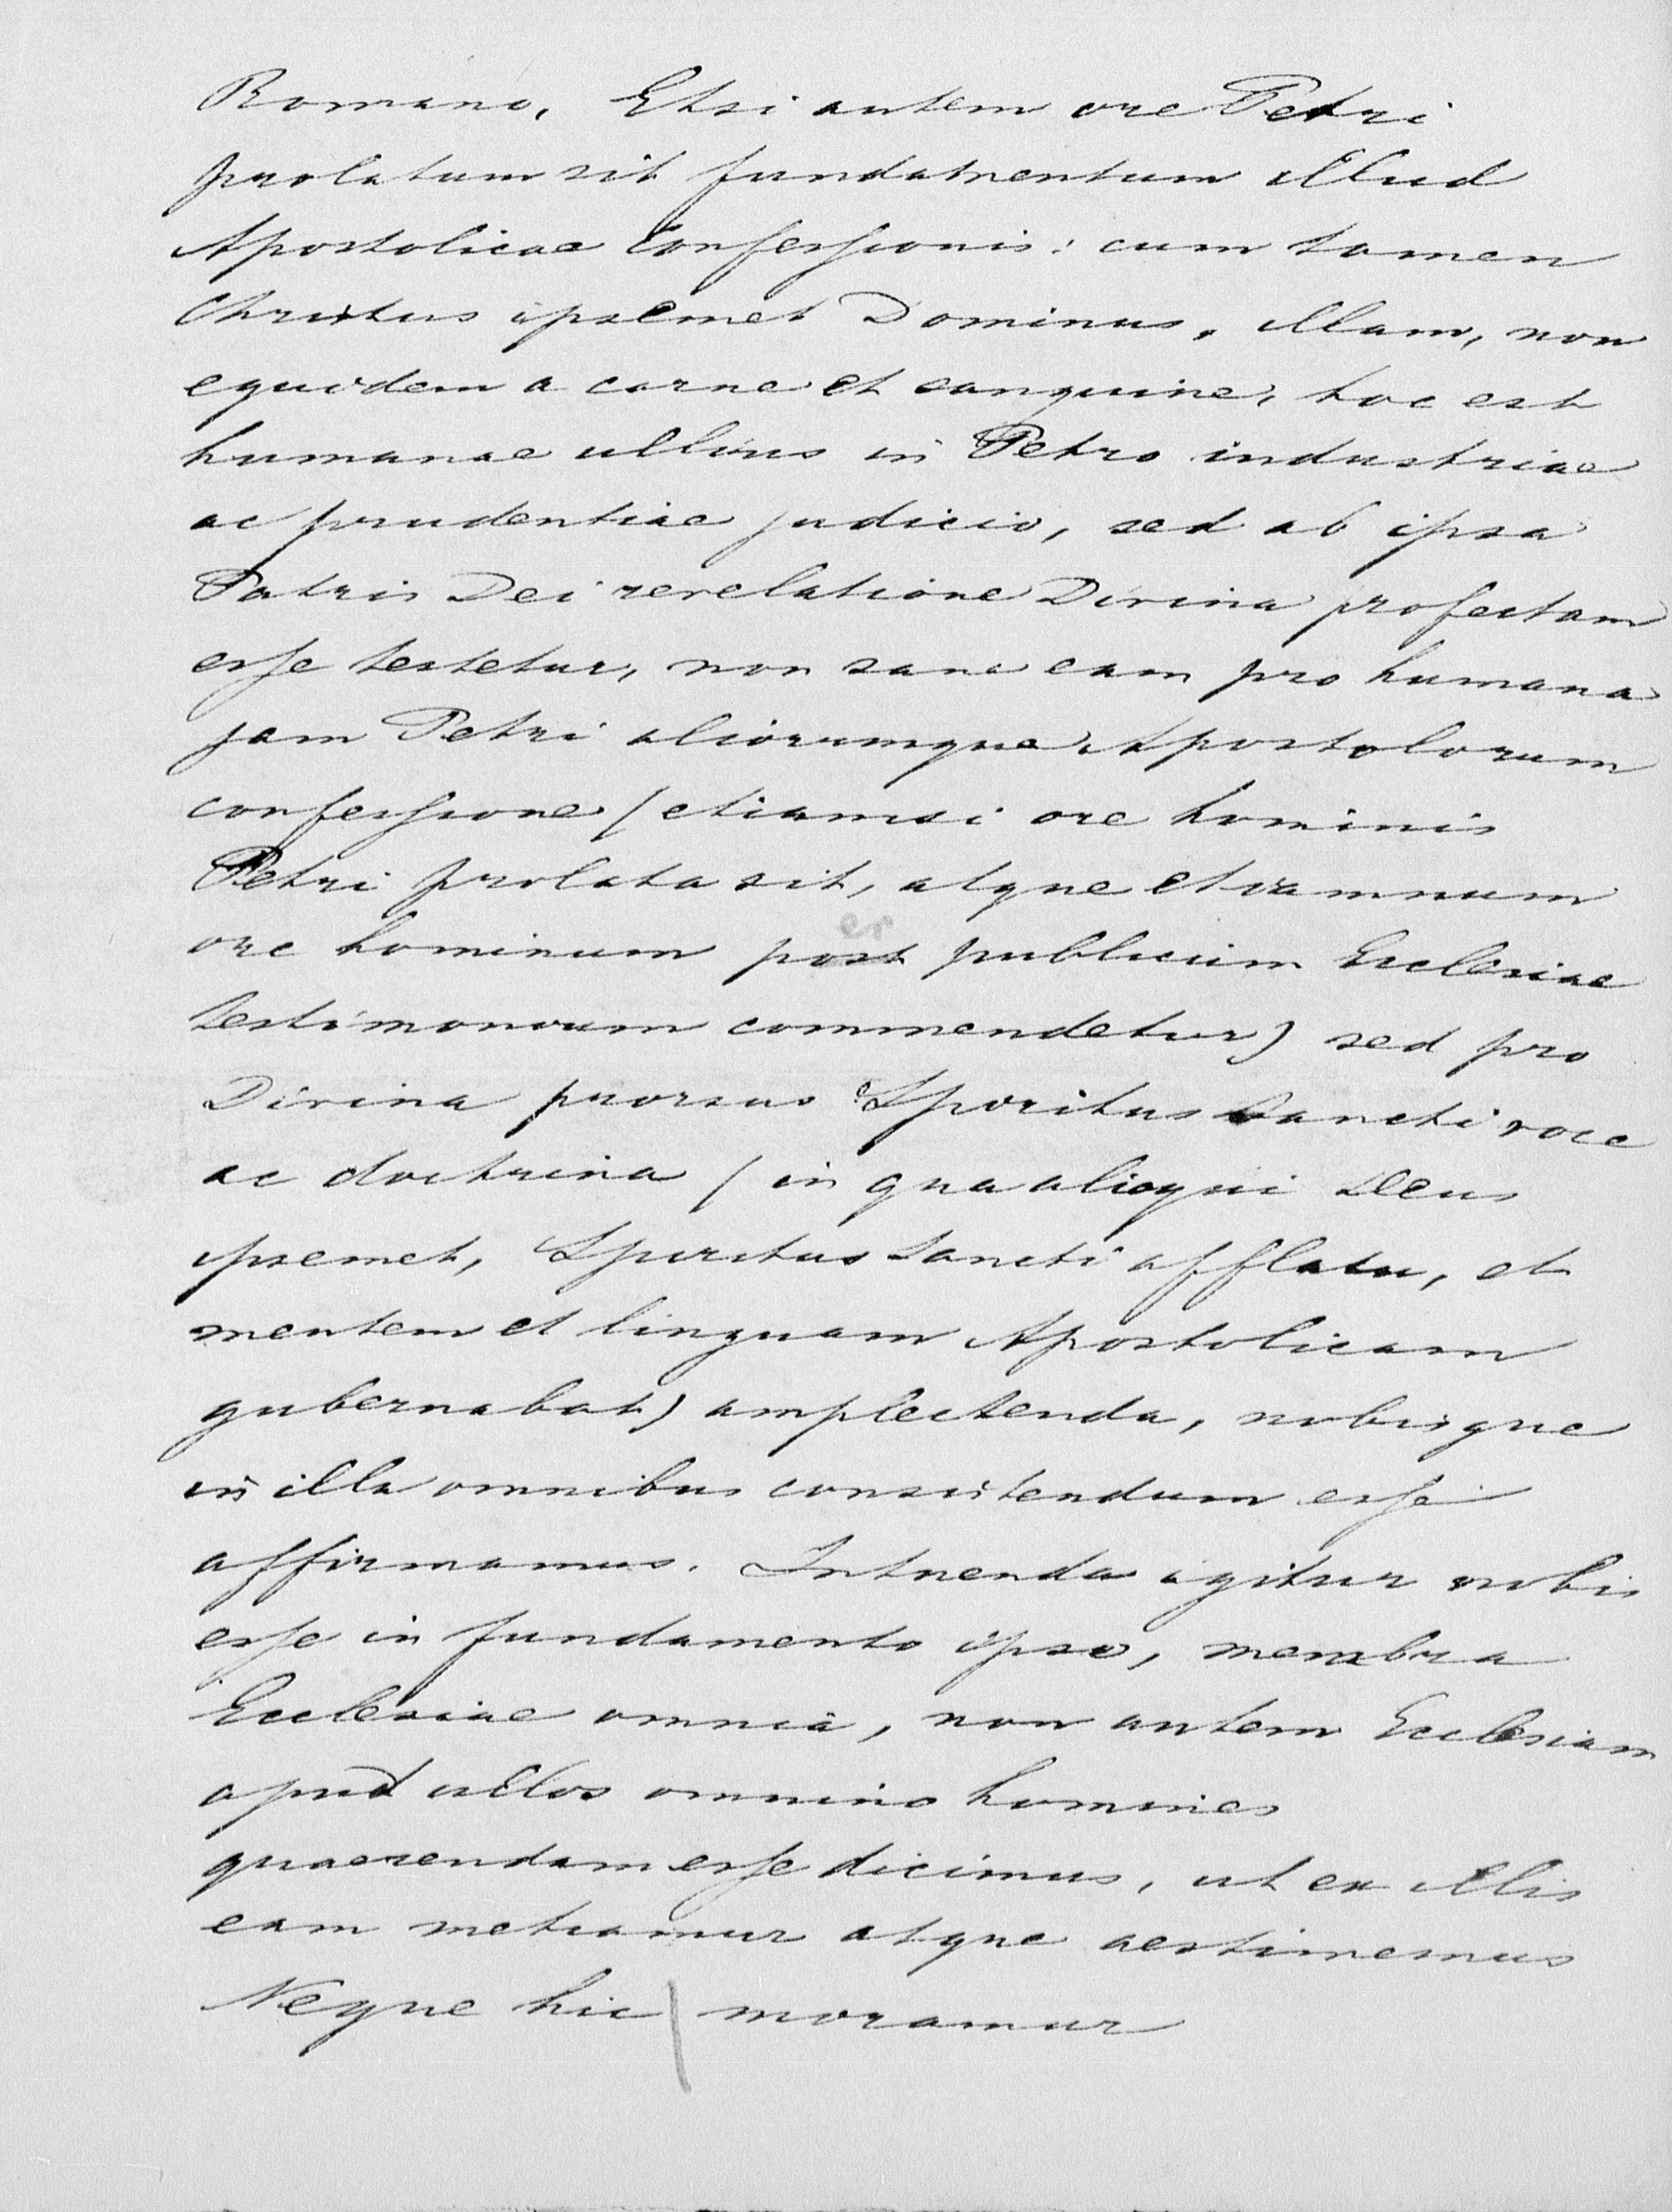 Romano. Etsi autem ore Petri
prolatum sit fundamentum illud
Apostolicae Confessionis: cum tamen
Christus ipsemet Dominus, illam, non
equidem a carne et sanguine, hoc est
humanae ullius in Petro industriae
ac prudentiae judicio, sed ab ipsa
Patris Dei revelatione Divina profectam
esse testetur, non sane eam pro humana
jam Petri aliorumque Apostolorum
confessione (etiamsi ore hominis
Petri prolata sit, atque etiamnum
er
ore hominum post publicum Ecclesiae
testimonium commendetur) sed pro
Divina prorsus Spiritus Sancti voce
ac doctrina (in qua alioqui Deus
ipsemet, Spiritus Sancti afflatu, et
mentem et linguam Apostolicam
gubernabat) amplectenda, nobisque
in illa omnibus consistendum esse
affirmamus. Intuenda igitur nobis
esse in fundamento ipso, membra
Ecclesiae omnia, non autem Ecclesiam
apud ullos omnino homines
quaerendam esse dicimus, ut ex illis
eam metiamur atque aestimemus
Neque hic | moramur